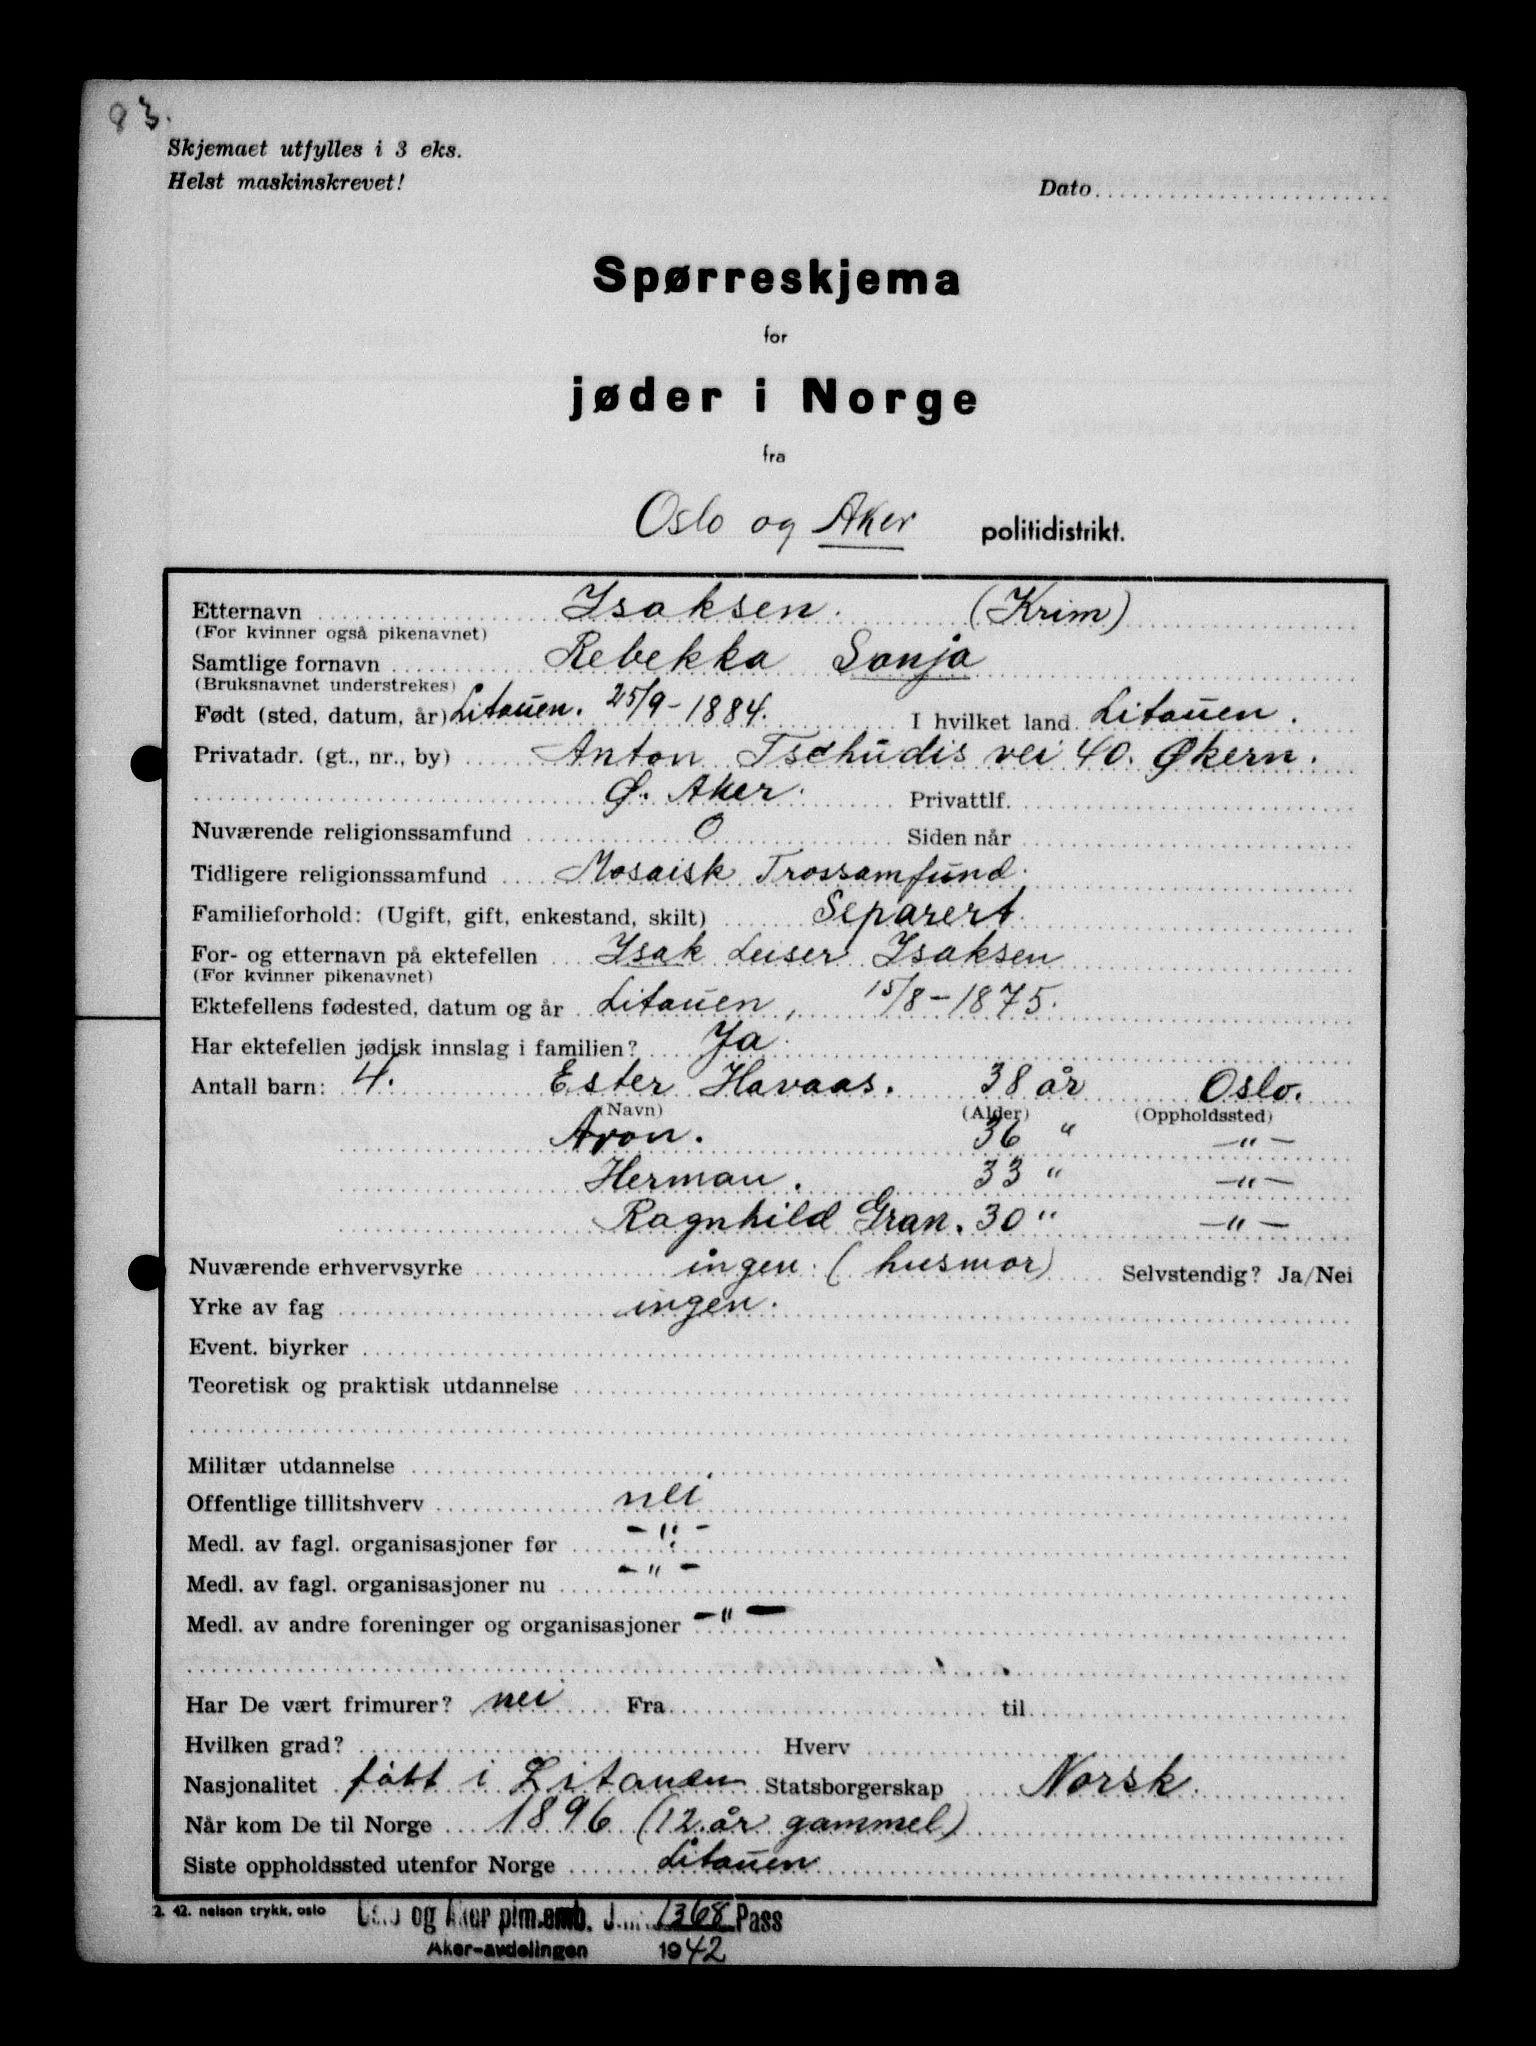 83.
Skjemaet utfylles i 3 eks.
Helst maskinskrevet!
Dato
Spørreskjema
for
jøder i Norge
fra
Oslo og Aker politidistrikt.
Etternavn Isaksen. (Krim)
(For kvinner også pikenavnet)
Samtlige fornavn Rebekka Sonja
(Bruksnavnet understrekes)
Født (sted, datum, år) Litauen. 25/9-1884. I hvilket land Litauen.
Privatadr. (gt., nr., by) Anton Tschudis vei 40. Økern.
Ø. Aker. Privattlf.
Nuværende religionssamfund 0 Siden når
Tidligere religionssamfund Mosaisk Trossamfund.
Familieforhold: (Ugift, gift, enkestand, skilt) Separert.
For- og etternavn på ektefellen Isak Leiser Isaksen
(For kvinner pikenavnet)
Ektefellens fødested, datum og år Litauen, 15/8-1875.
Har ektefellen jødisk innslag i familien? Ja.
Antall barn: 4. Ester Havaas. 38 år Oslo.
(Navn) (Alder) (Oppholdssted)
Aron. 36 " —"—
Herman. 33 " —"—
Ragnhild Gran. 30 " —"—
Nuværende erhvervsyrke ingen (husmor) Selvstendig? Ja/Nei
Yrke av fag ingen.
Event. biyrker
Teoretisk og praktisk utdannelse
Militær utdannelse
Offentlige tillitshverv nei
Medl. av fagl. organisasjoner før —"—
Medl. av fagl. organisasjoner nu —"—
Medl. av andre foreninger og organisasjoner —"—
Har De vært frimurer? nei Fra til
Hvilken grad? Hverv
Nasjonalitet født i Litauen Statsborgerskap Norsk.
Når kom De til Norge 1896 (12 år gammel)
Siste oppholdssted utenfor Norge Litauen
2. 42. nelson trykk, oslo
Oslo og Aker plm.emb. J.nr. 1368 Pass
Aker-avdelingen 1942